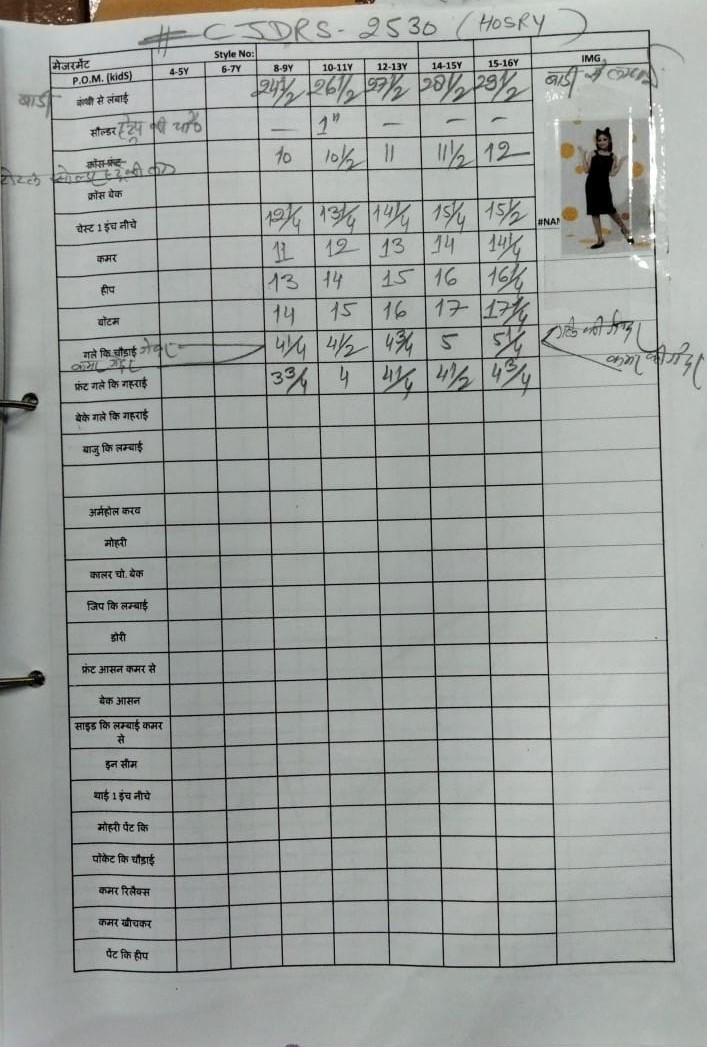 # CJDRS-2530 (HOSRY)
मेजरमेंट Style No:
P.O.M. (kidS) 4-5Y 6-7Y 8-9Y 10-11Y 12-13Y 14-15Y 15-16Y IMG
बाडी कंधी से लंबाई 24 1/2 26 1/2 27 1/2 28 1/2 29 1/2 बाडी से
सौल्डर — 1" — — —
क्रॉस फ्रंट 10 10 1/2 11 11 1/2 12
क्रॉस बेक
चेस्ट 1 इंच नीचे 12 1/4 13 1/4 14 1/4 15 1/4 15 1/2 #NAM
कमर 11 12 13 14 14 1/4
हीप 13 14 15 16 16 1/4
बॉटम 14 15 16 17 17 1/4
गले कि चौड़ाई 4 1/4 4 1/2 4 3/4 5 5 1/4
फ्रंट गले कि गहराई 3 3/4 4 4 1/4 4 1/2 4 3/4
बेके गले कि गहराई
बाजु कि लम्बाई
अर्महोल करव
मोहरी
कालर चो. बेक
जिप कि लम्बाई
डोरी
फ्रंट आसन कमर से
बेक आसन
साइड कि लम्बाई कमर
से
इन सीम
थाई 1 इंच नीचे
मोहरी पेंट कि
पॉकेट कि चौड़ाई
कमर रिलैक्स
कमर खीचकर
पेंट कि हीप